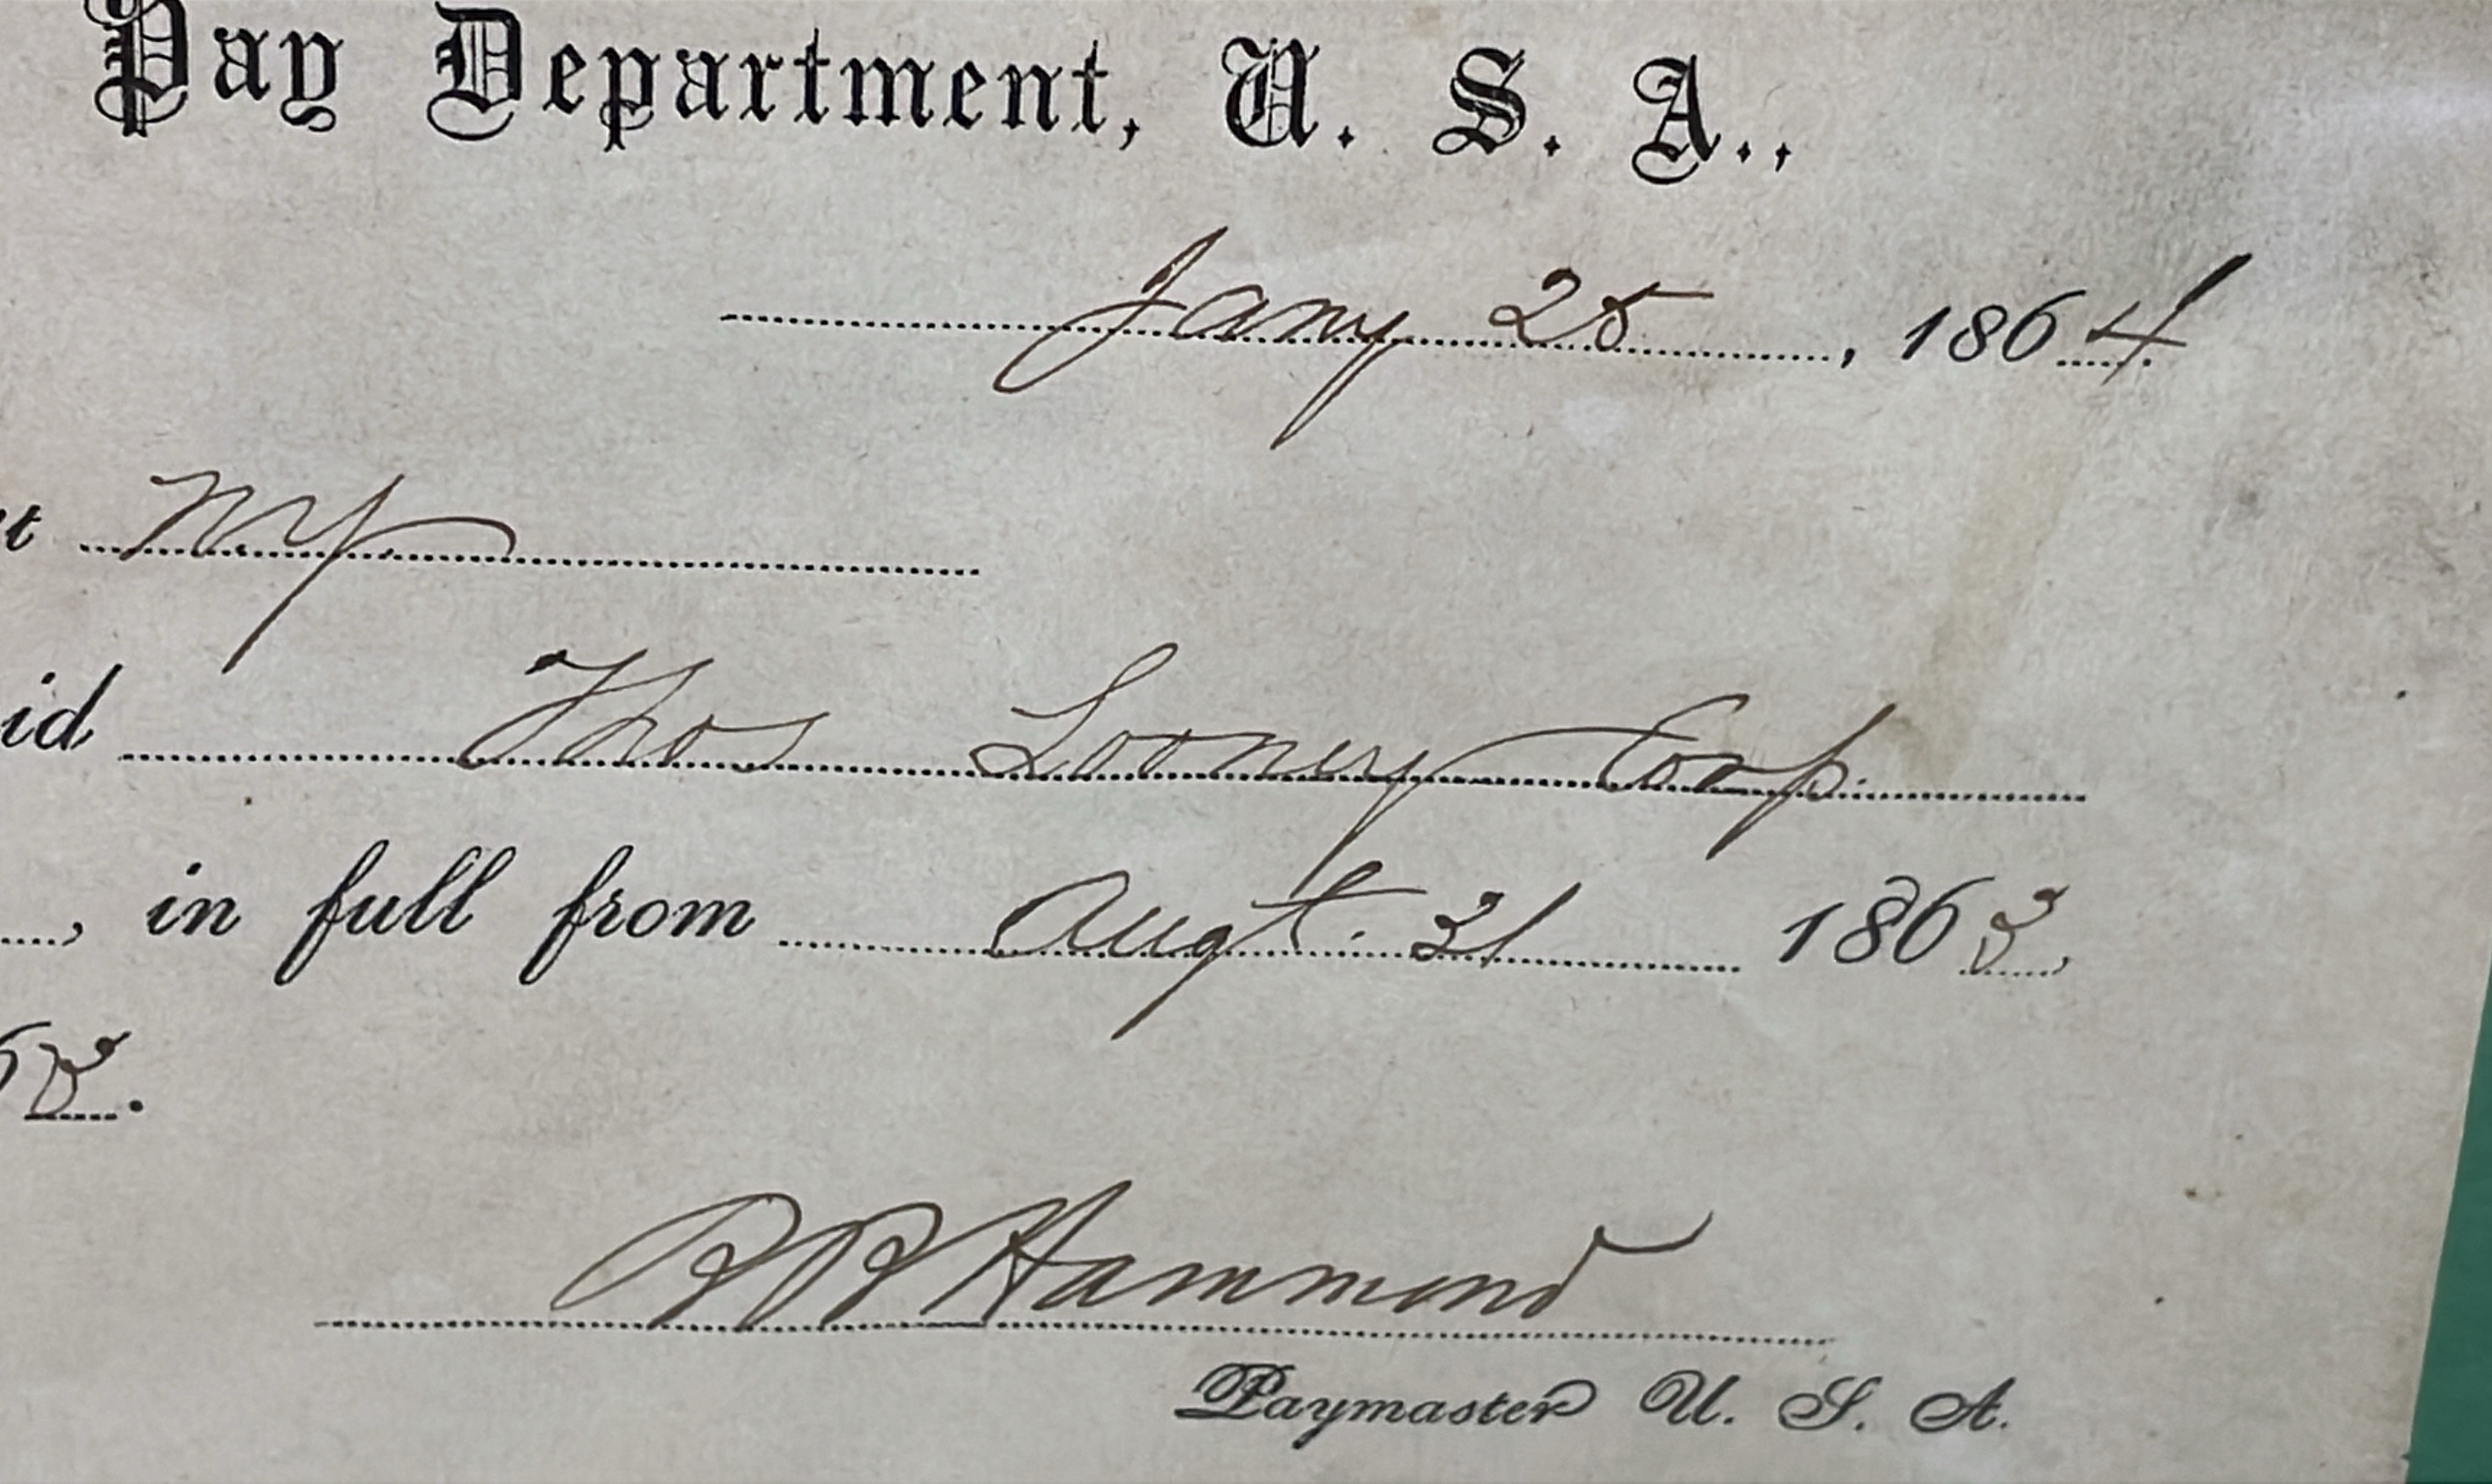 Pay Department, U. S. A.,
Jany 25, 1864.
t NY
id Thos Looney Corp.
, in full from Augt. 31 1863,
63.
Hammond
Paymaster U. S. A.